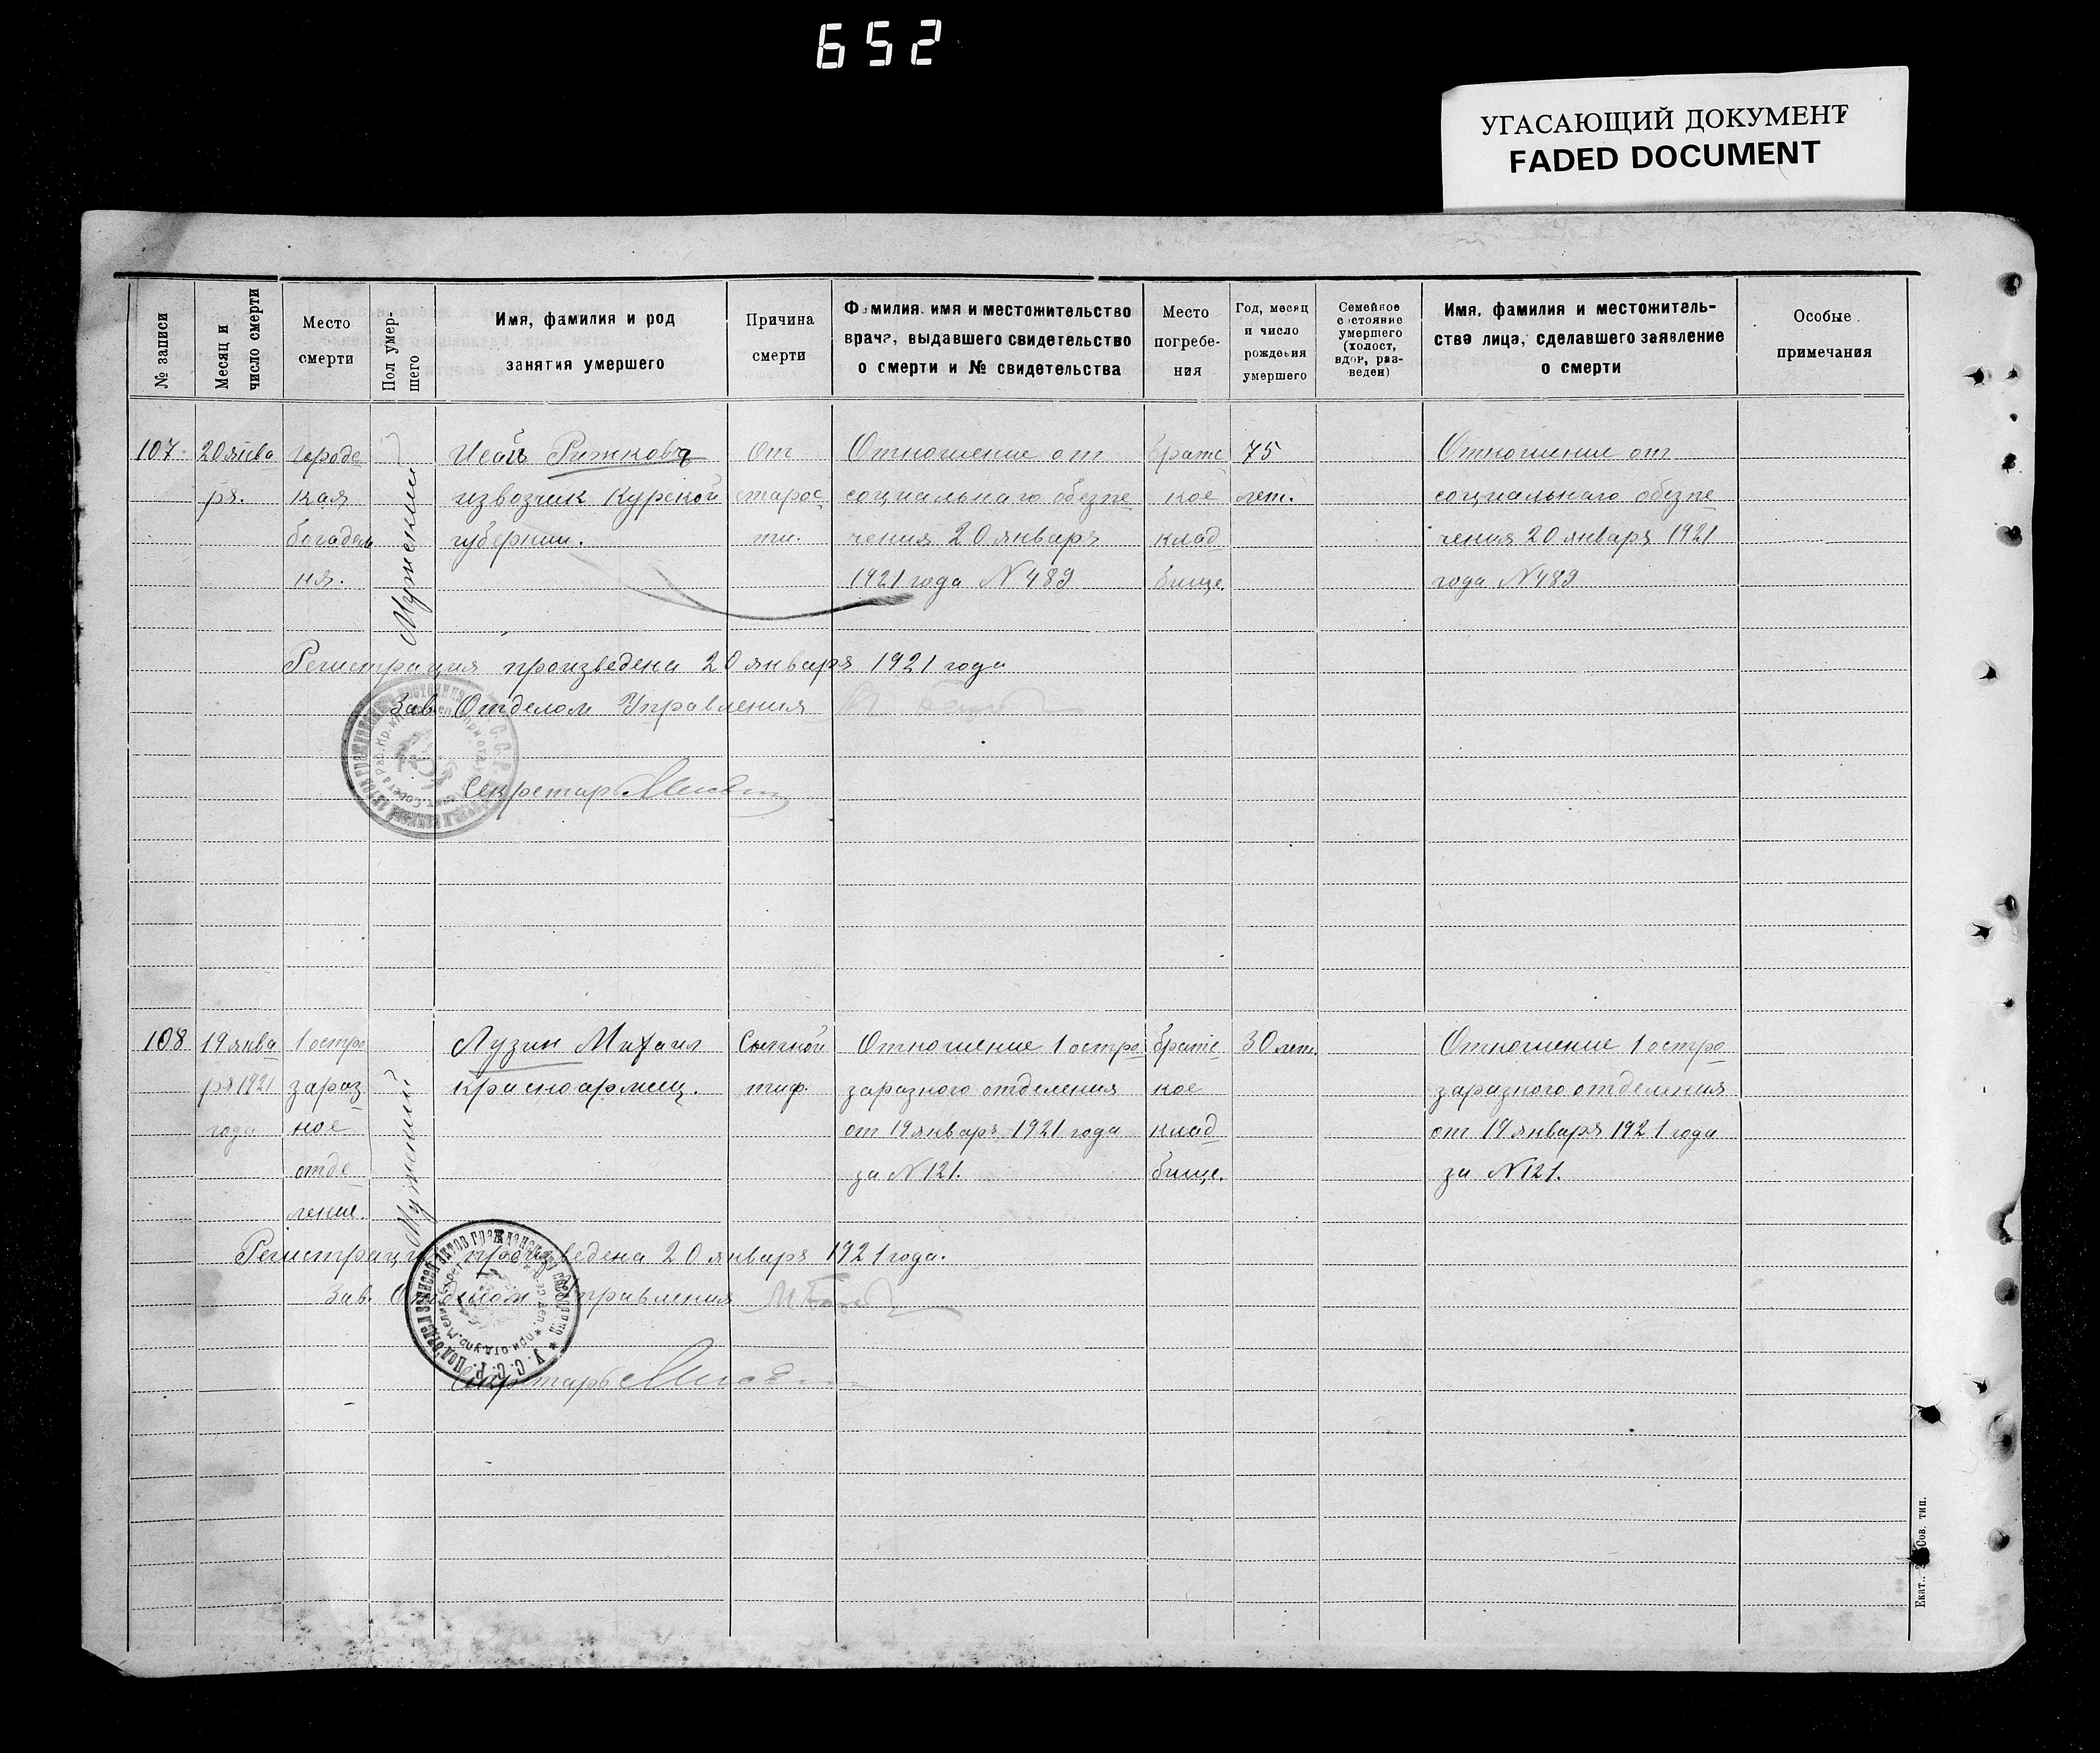 652
УГАСАЮЩИЙ ДОКУМЕНТ
FADED DOCUMENT
№ записи
Месяц и число смерти
Место смерти
Пол умер-
шего
Имя, фамилия и род
занятия умершего
Причина
смерти
Фамилия, имя и местожительство
врача, выдавшего свидетельство
о смерти и № свидетельства
Место
погребе-
ния
Год, месяц
и число
рождения
умершего
Семейное
состояние
умершего
(холост,
вдов, раз-
веден)
Имя, фамилия и местожитель-
ство лица, сделавшего заявление
о смерти
Особые
примечания
107
20 янва
ря.
городс
кая
богадел
ня.
Мужской
Иван Рижковъ
извозчик Курской
губернии.
От
старос
ти.
Отношение от
социальнаго обезпе
чения 20 января
1921 года N 489
братс
кое
клад
бище.
75
лет.
Отношение от
социальнаго обезпе
чения 20 января 1921
года N 489
Регистрация произведена 20 января 1921 года
Зав. Отделом Управления
Секретарь
108
19 янва
ря 1921
года
1 остро
зараз
ное
отде
ление.
Мужской
Лузин Михаил
красноармеец.
Сыпной
тиф.
Отношение 1 остро
заразного отделения
от 19 января 1921 года
за N 121.
братс
кое
клад
бище.
30 лет.
Отношение 1 остро
заразного отделения
от 19 января 1921 года
за N 121.
Регистрация произведена 20 января 1921 года.
Зав. Отделом Управления
У.С.С.Р. Подотдел записей актов гражданского состояния
Секретарь
Сов. тип.
Екат.